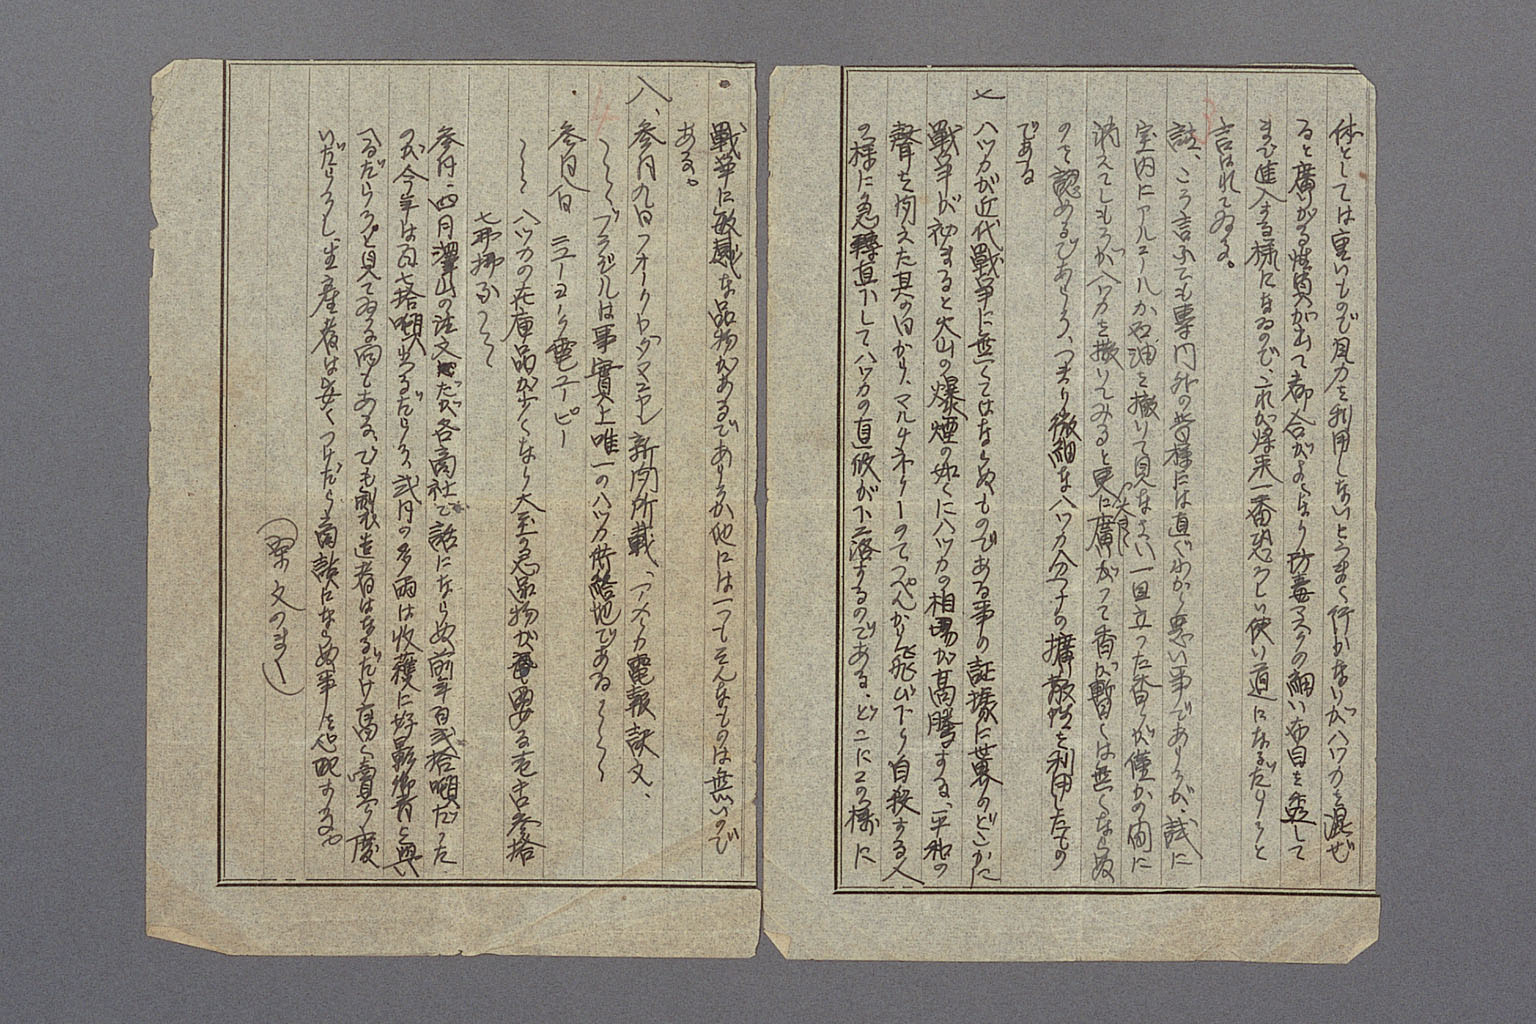 体としては重いもので風力を利用しないとうまく行かないがハッカを混ぜ
ると廣がる性質が出て都合がよくなり防毒マスクの細い布目を透して
まで進入する様になるので、之れが将来一番恐ろしい使い道になるだらうと
言はれてゐる。
註、こう言ふても専門外の皆様には直ぐわから無い事でありませうが、試に
室内にアルコールか石油を撒いて見なさい一旦立った香りが僅かの間に
消えてしもうがハッカを撒いてみると更に廣がって香が暫くは無くならぬ
のを認めるであらう、つまり微細なハッカ分子の擴散性を利用したもの
である
七
ハッカが近代戰爭に無くてはならぬものである事の証據に世界のどこかに
戰爭が初まると火山の爆煙の如くにハッカの相場が高騰する、平和の
聲を聞えた其の日から、マルチネリーのてっぺんから飛び下り自殺する人
の様に急轉直下してハッカの直段が下落するのである、どこにこの様に
戰爭に敏感な品物があるでありませうか他には一つもそんなものは無いので
ある。
八、参月九日フオークトダマニヤン新聞所載、アメリカ電報訳文、
〜〜ブラジルは事實上唯一のハッカ供給地である〜〜〜
参月八日 ニューヨーク電ユーピー
〜〜 ハッカの在庫品が少くなり大至急品物が要る壱古参拾
七弗挪 〜〜
参月、四月澤山の注文だが各商社で話にならぬ前年百弐拾噸だった
のが今年は百七拾噸出るだらう、弐月の多雨は收穫に好影響を與
へるだらうと見てゐる向もある、でも製造者はなるだけ高く賣り度
いだらうし生産者は安くつけたら商談にならぬ事を心配する。
(原文のまゝ)